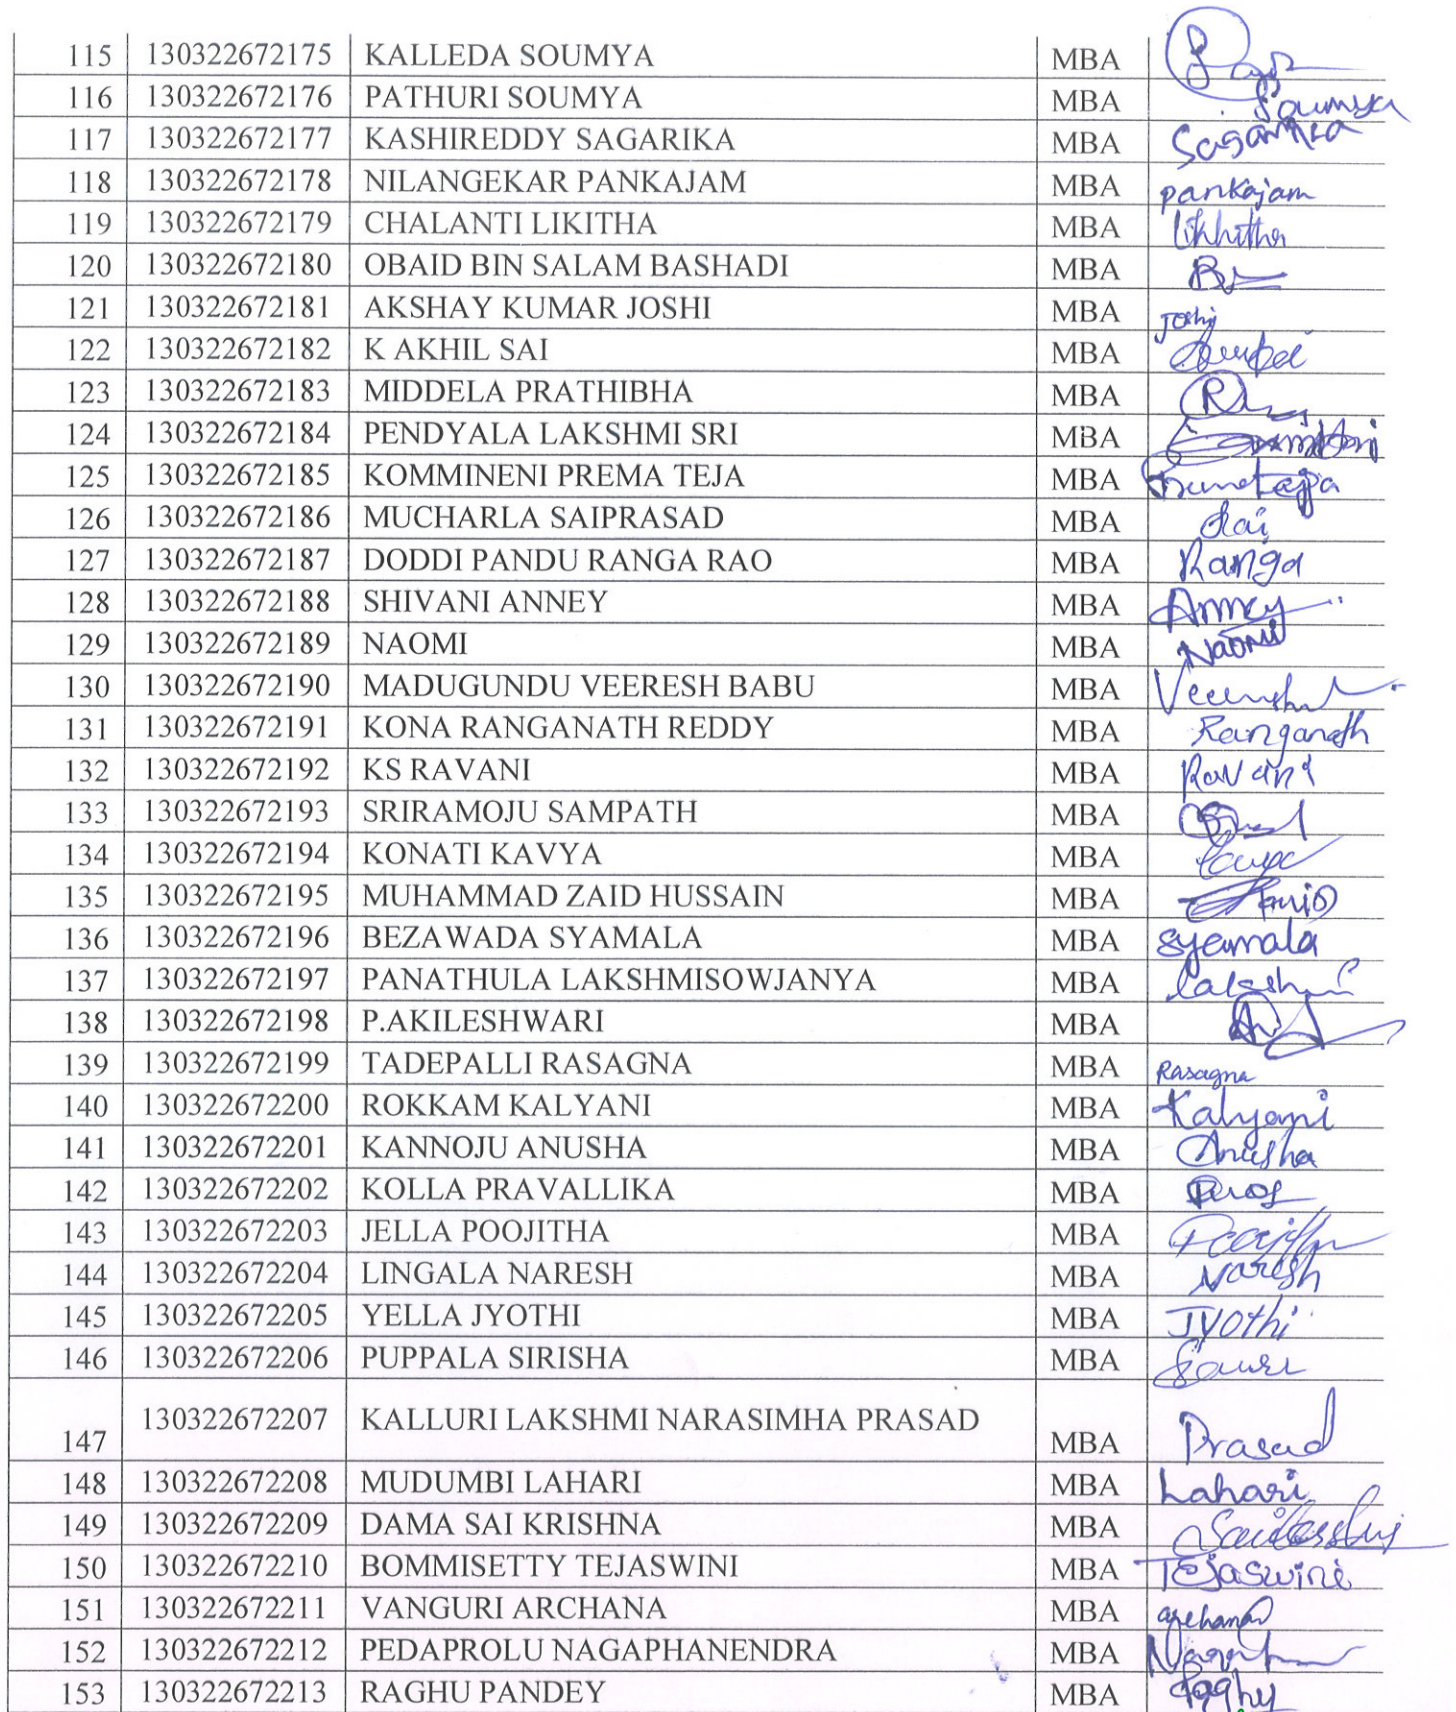 115 130322672175 KALLEDA SOUMYA MBA
116 130322672176 PATHURI SOUMYA MBA Soumya
117 130322672177 KASHIREDDY SAGARIKA MBA Sagarika
118 130322672178 NILANGEKAR PANKAJAM MBA pankajam
119 130322672179 CHALANTI LIKITHA MBA likhitha
120 130322672180 OBAID BIN SALAM BASHADI MBA
121 130322672181 AKSHAY KUMAR JOSHI MBA Joshi
122 130322672182 K AKHIL SAI MBA
123 130322672183 MIDDELA PRATHIBHA MBA
124 130322672184 PENDYALA LAKSHMI SRI MBA
125 130322672185 KOMMINENI PREMA TEJA MBA
126 130322672186 MUCHARLA SAIPRASAD MBA Sai
127 130322672187 DODDI PANDU RANGA RAO MBA Ranga
128 130322672188 SHIVANI ANNEY MBA Anney
129 130322672189 NAOMI MBA Naomi
130 130322672190 MADUGUNDU VEERESH BABU MBA
131 130322672191 KONA RANGANATH REDDY MBA Ranganath
132 130322672192 KS RAVANI MBA Ravani
133 130322672193 SRIRAMOJU SAMPATH MBA
134 130322672194 KONATI KAVYA MBA
135 130322672195 MUHAMMAD ZAID HUSSAIN MBA
136 130322672196 BEZAWADA SYAMALA MBA Syamala
137 130322672197 PANATHULA LAKSHMISOWJANYA MBA Lakshmi
138 130322672198 P.AKILESHWARI MBA
139 130322672199 TADEPALLI RASAGNA MBA Rasagna
140 130322672200 ROKKAM KALYANI MBA Kalyani
141 130322672201 KANNOJU ANUSHA MBA Anusha
142 130322672202 KOLLA PRAVALLIKA MBA
143 130322672203 JELLA POOJITHA MBA Poojitha
144 130322672204 LINGALA NARESH MBA Naresh
145 130322672205 YELLA JYOTHI MBA Jyothi
146 130322672206 PUPPALA SIRISHA MBA
147 130322672207 KALLURI LAKSHMI NARASIMHA PRASAD MBA Prasad
148 130322672208 MUDUMBI LAHARI MBA Lahari
149 130322672209 DAMA SAI KRISHNA MBA
150 130322672210 BOMMISETTY TEJASWINI MBA Tejaswini
151 130322672211 VANGURI ARCHANA MBA archana
152 130322672212 PEDAPROLU NAGAPHANENDRA MBA
153 130322672213 RAGHU PANDEY MBA Raghu